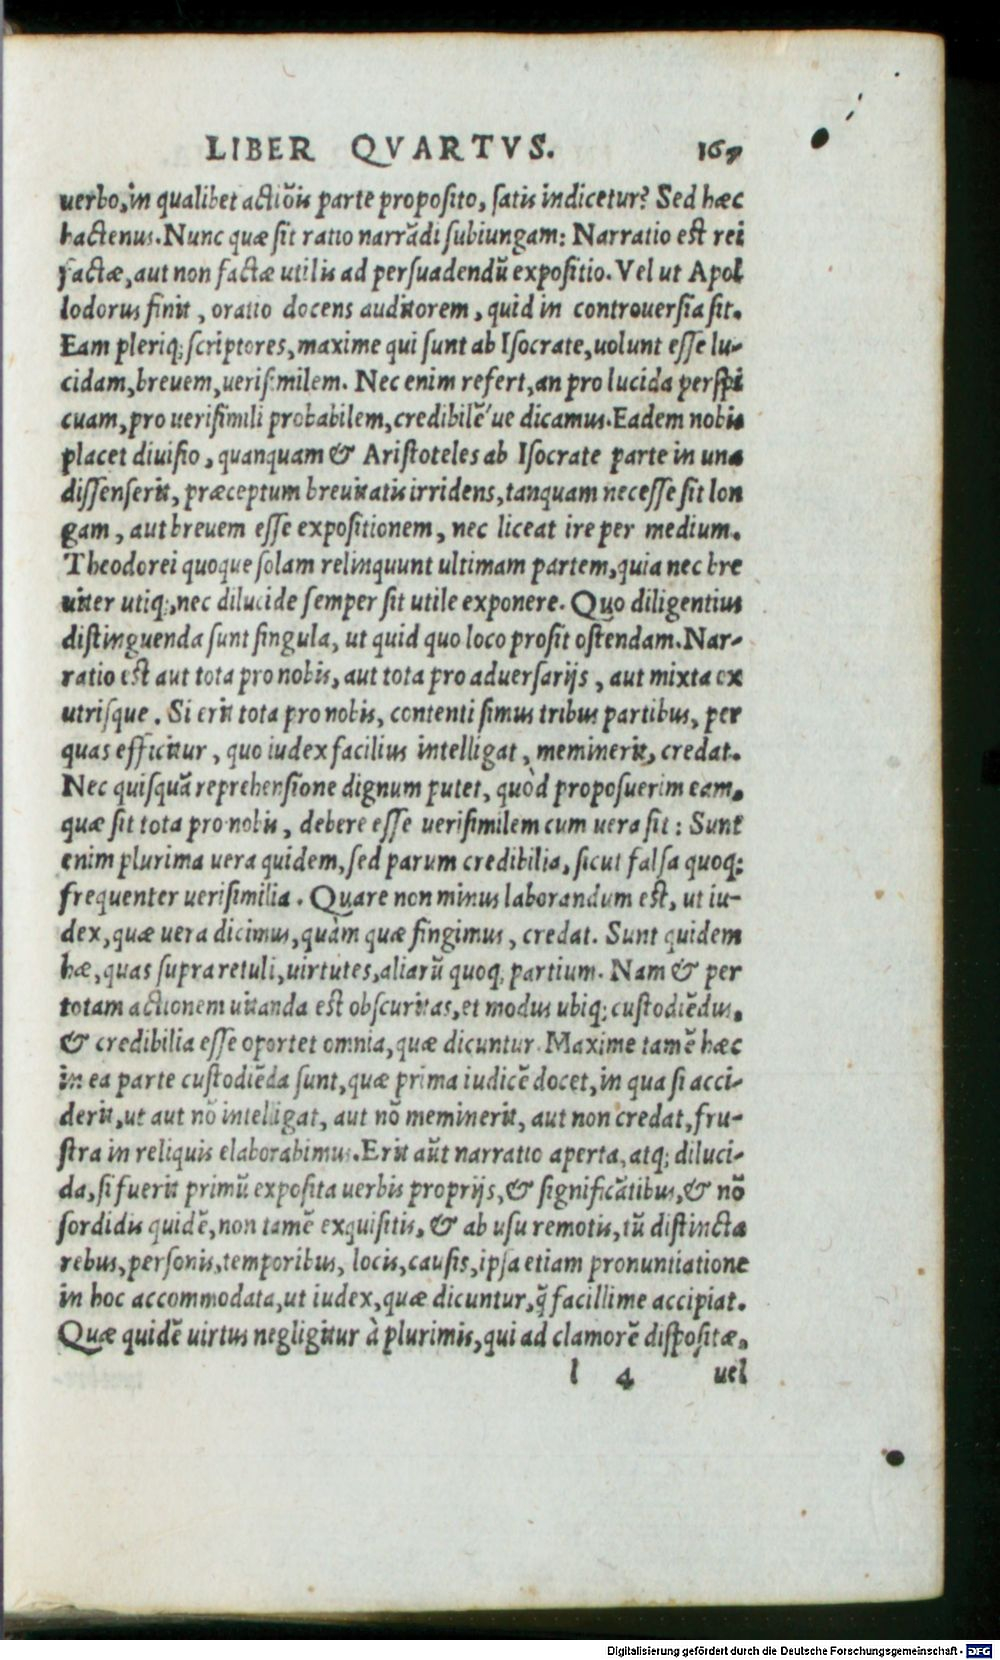 LIBER QVARTVS. 167
uerbo, in qualibet actiõis parte proposito, satis indicetur? Sed hæc
hactenus. Nunc quæ sit ratio narrãdi subiungam: Narratio est rei
factæ, aut non factæ utilis ad persuadendũ expositio. Vel ut Apol
lodorus finit, oratio docens auditorem, quid in controuersia sit.
Eam pleriq; scriptores, maxime qui sunt ab Isocrate, uolunt esse lu-
cidam, breuem, uerisimilem. Nec enim refert, an pro lucida perspi
cuam, pro uerisimili probabilem, credibilẽ'ue dicamus. Eadem nobis
placet diuisio, quanquam & Aristoteles ab Isocrate parte in una
dissenserit, præceptum breuitatis irridens, tanquam necesse sit lon
gam, aut breuem esse expositionem, nec liceat ire per medium.
Theodorei quoque solam relinquunt ultimam partem, quia nec bre
uiter utiq;, nec dilucide semper sit utile exponere. Quo diligentius
distinguenda sunt singula, ut quid quo loco prosit ostendam. Nar-
ratio est aut tota pro nobis, aut tota pro aduersarijs, aut mixta ex
utrisque. Si erit tota pro nobis, contenti simus tribus partibus, per
quas efficitur, quo iudex facilius intelligat, meminerit, credat.
Nec quisquã reprehensione dignum putet, quòd proposuerim eam,
quæ sit tota pro nobis, debere esse uerisimilem cum uera sit: Sunt
enim plurima uera quidem, sed parum credibilia, sicut falsa quoq;
frequenter uerisimilia. Quare non minus laborandum est, ut iu-
dex, quæ uera dicimus, quàm quæ fingimus, credat. Sunt quidem
hæ, quas supra retuli, uirtutes, aliarũ quoq; partium. Nam & per
totam actionem uitanda est obscuritas, et modus ubiq; custodiẽdus,
& credibilia esse oportet omnia, quæ dicuntur. Maxime tamẽ hæc
in ea parte custodiẽda sunt, quæ prima iudicẽ docet, in qua si acci-
derit, ut aut nõ intelligat, aut nõ meminerit, aut non credat, fru-
stra in reliquis elaborabimus. Erit aũt narratio aperta, atq; diluci-
da, si fuerit primũ exposita uerbis proprijs, & significãtibus, & nõ
sordidis quidẽ, non tamẽ exquisitis, & ab usu remotis, tũ distincta
rebus, personis, temporibus, locis, causis, ipsa etiam pronuntiatione
in hoc accommodata, ut iudex, quæ dicuntur, q̃ facillime accipiat.
Quæ quidẽ uirtus negligitur à plurimis, qui ad clamorẽ dispositæ,
l 4 uel
Digitalisierung gefördert durch die Deutsche Forschungsgemeinschaft - DFG